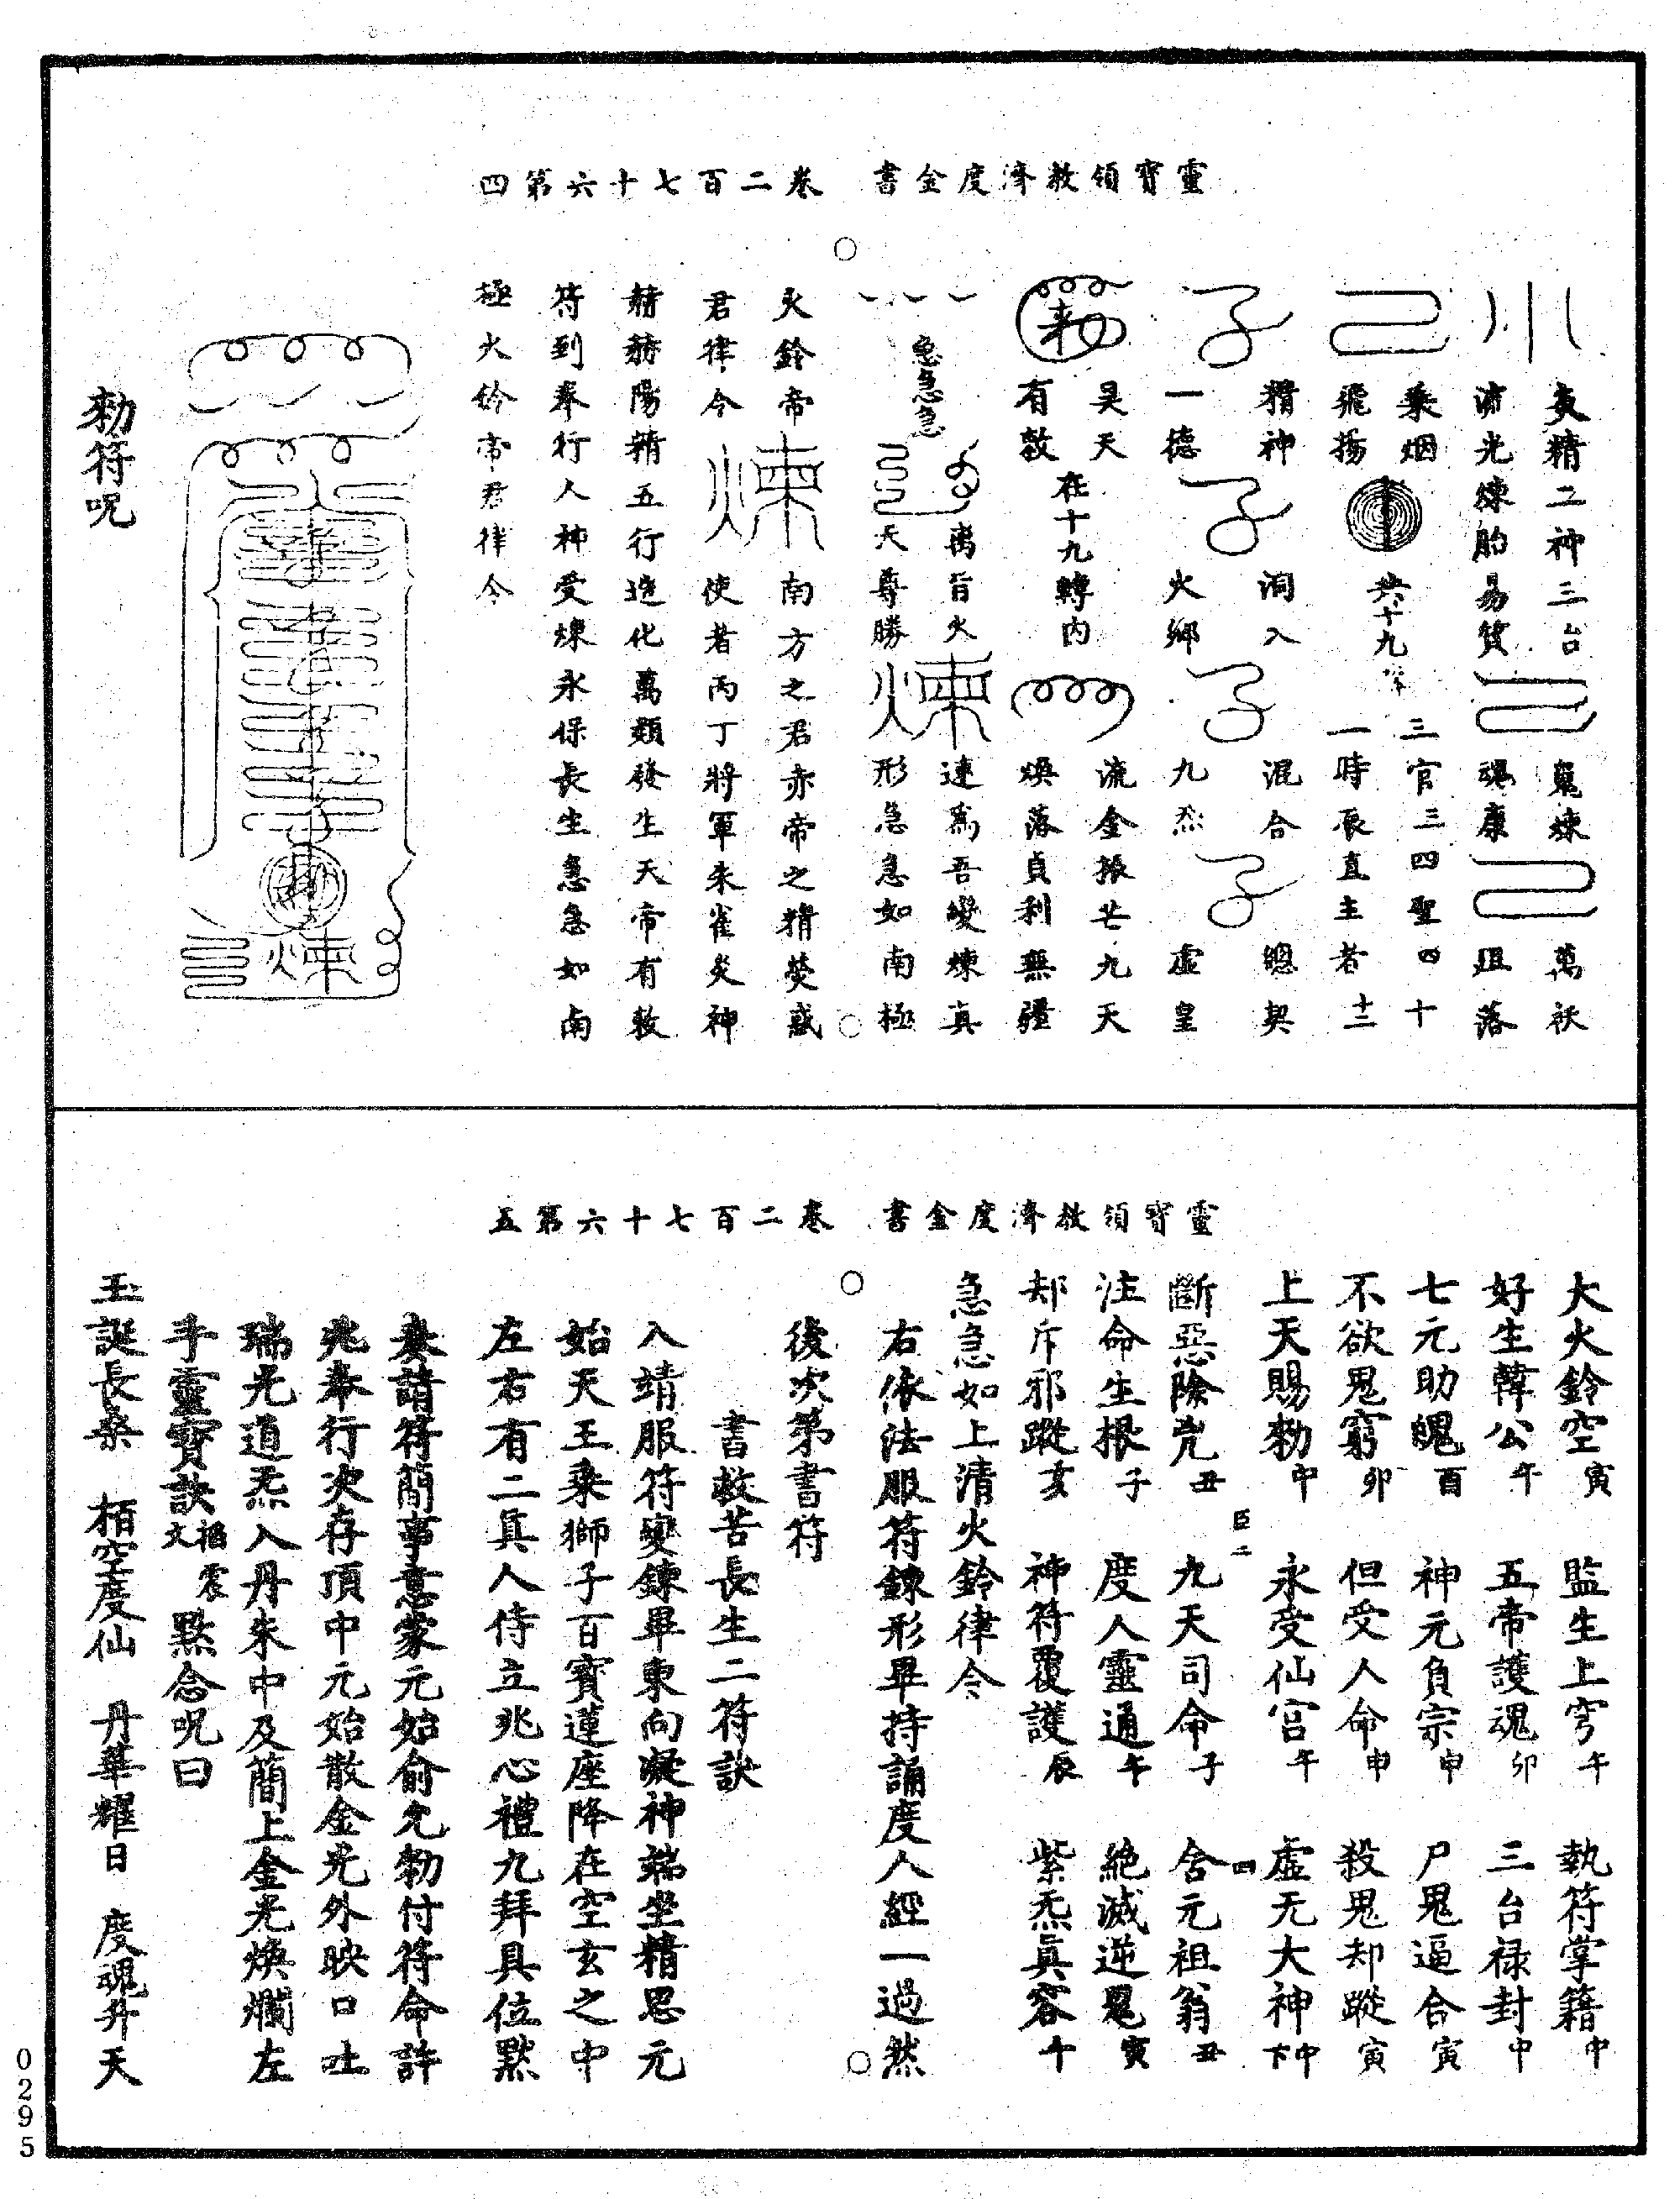 靈寶領教濟度金書　卷二百七十六第四
亥精二神三台　鬼煉　萬祆
流光煉胎易質　魂康　殂落
乘烟　共十九　三官三四聖四十
飛揚　一時辰直主者十二
精神　洞入　混合　總契
一德　火鄉　九炁　虛皇
昊天　在十九轉內　流金振芒九天
有敕　煥落貞利無疆
急急急　萬旨火　速為吾變煉真
天尊勝　形急急如南極
火鈴帝　南方之君赤帝之精熒惑
君律令　使者丙丁將軍朱雀炎神
赫赫陽精五行造化萬類發生天帝有敕
符到奉行人神受煉永保長生急急如南
極火鈴帝君律令
煉
勑符呪
靈寶領教濟度金書　卷二百七十六第五
大火鈴空寅　監生上穹午　執符掌籍中
好生韓公午　五帝護魂卯　三台禄封中
七元助魄酉　神元負宗申　尸鬼逼合寅
不欲鬼窮卯　但受人命申　殺鬼却蹤寅
上天賜勑中　永受仙宮午　虛无大神中下
臣二　四
斷惡除兇丑　九天司命子　含元祖翁丑
注命生根子　度人靈通午　絕滅逆鬼寅
却斥邪蹤亥　神符覆護辰　紫炁真容午
急急如上清火鈴律令
右依法服符鍊形畢持誦度人經一過然
後次第書符
書救苦長生二符訣
入靖服符變鍊畢東向凝神端坐精思元
始天王乘獅子百寶蓮座降在空玄之中
左右有二真人侍立兆心禮九拜具位默
奏請符簡事意蒙元始俞允勑付符命許
兆奉行次存頂中元始散金光外映口吐
瑞光道炁入丹朱中及簡上金光煥爛左
手靈寶訣掐震文默念呪曰
玉誕長桑　栢空度仙　丹華耀日　度魂升天
0295